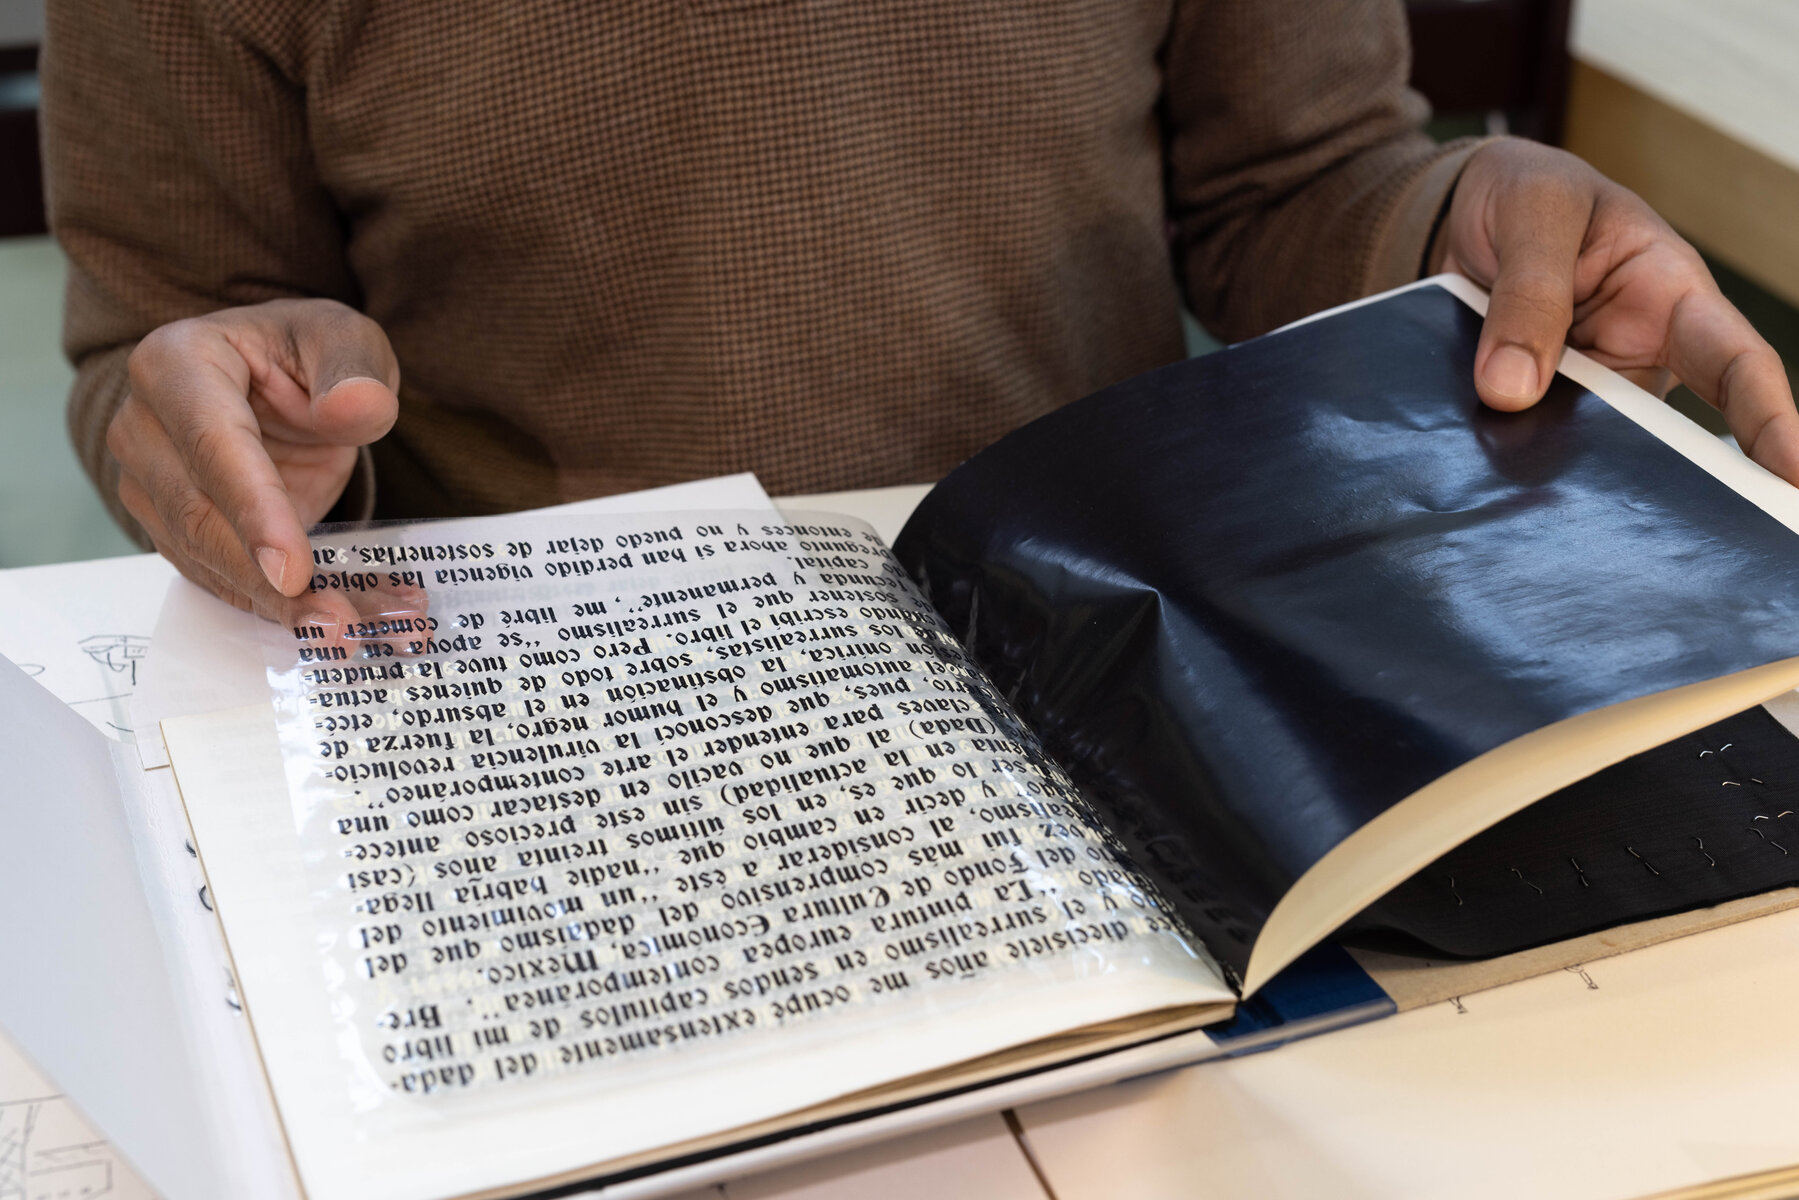 diecisiete años me ocupé extensamente del dada-
y el surrealismo en sendos capítulos de mi libro
"La pintura europea contemporánea". Bre-
del Fondo de Cultura Económica, Mexico.
vez fui más comprensivo del dadaísmo que del
al considerar a este "un movimiento del
y decir en cambio que "nadie habría llega-
ser lo que es, en los últimos treinta años (casi
en la actualidad) sin este precioso antece-
(Dada) al que no vacilo en destacar como una
claves para entender el arte contemporáneo".
pues, que desconocí la virulencia revolucio-
del automatismo y el humor negro, la fuerza de
onírica, la obstinación en el absurdo, etcé-
de los surrealistas, sobre todo de quienes actua-
cuando escribí el libro. Pero como tuve la pruden-
de sostener que el surrealismo "se apoya en una
fecunda y permanente", me libré de cometer un
capital.
pregunto ahora si han perdido vigencia las objeci
entonces y no puedo dejar de sostenerlas, au